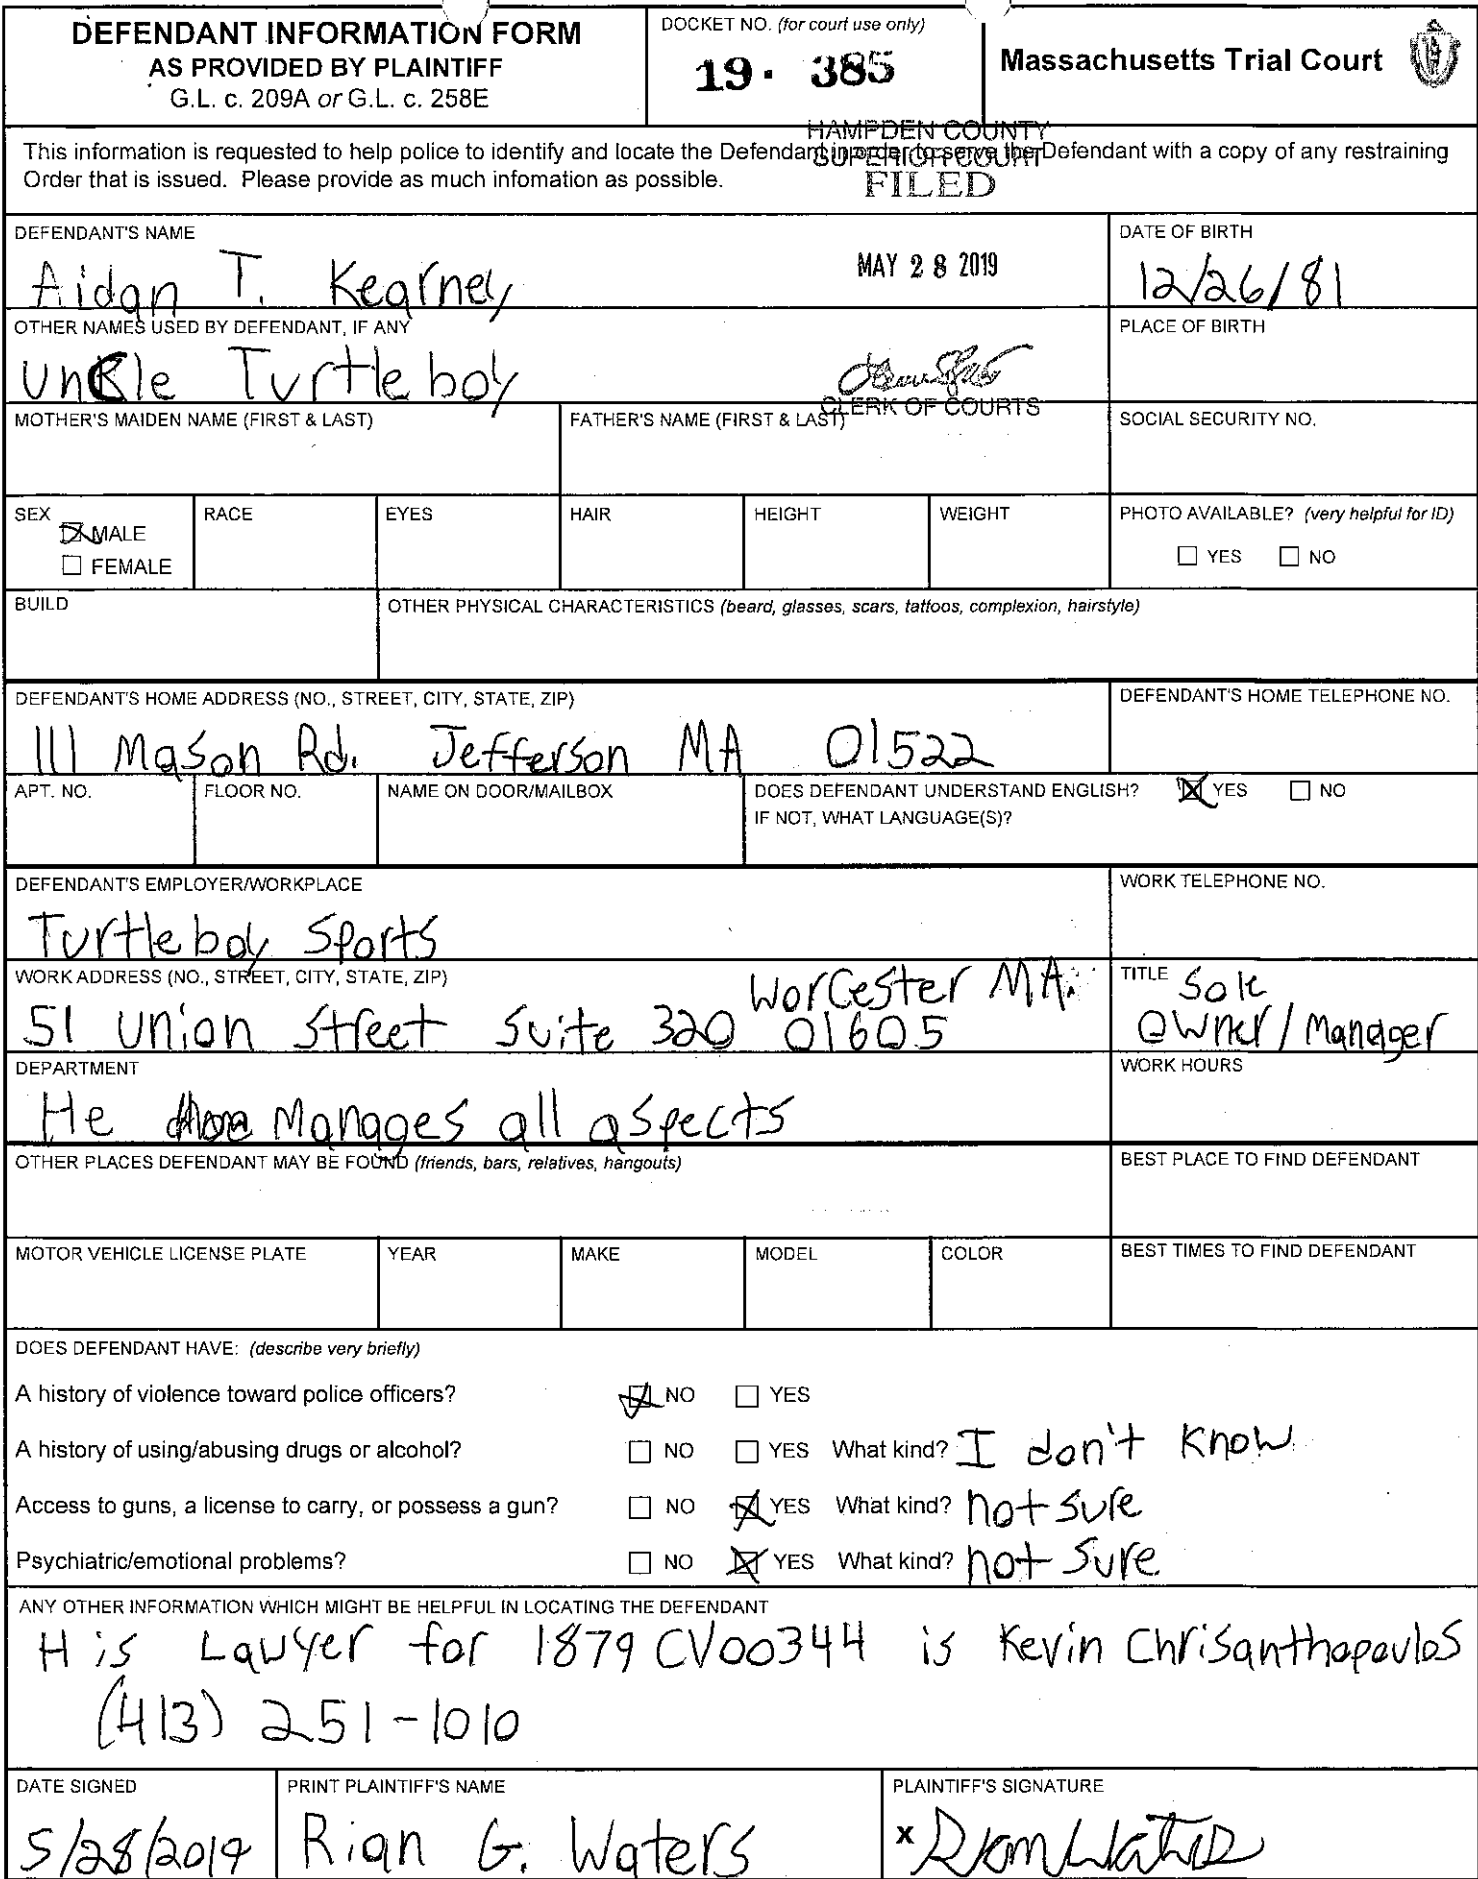 DEFENDANT INFORMATION FORM
AS PROVIDED BY PLAINTIFF
G.L. c. 209A or G.L. c. 258E
DOCKET NO. (for court use only)
19 · 385
Massachusetts Trial Court
HAMPDEN COUNTY
SUPERIOR COURT
FILED
This information is requested to help police to identify and locate the Defendant in order to serve the Defendant with a copy of any restraining
Order that is issued. Please provide as much infomation as possible.
DEFENDANT'S NAME
Aidan T. Kearney
MAY 28 2019
DATE OF BIRTH
12/26/81
OTHER NAMES USED BY DEFENDANT, IF ANY
Uncle Turtleboy
CLERK OF COURTS
PLACE OF BIRTH
MOTHER'S MAIDEN NAME (FIRST & LAST)
FATHER'S NAME (FIRST & LAST)
SOCIAL SECURITY NO.
SEX
MALE
FEMALE
RACE
EYES
HAIR
HEIGHT
WEIGHT
PHOTO AVAILABLE? (very helpful for ID)
YES NO
BUILD
OTHER PHYSICAL CHARACTERISTICS (beard, glasses, scars, tattoos, complexion, hairstyle)
DEFENDANT'S HOME ADDRESS (NO., STREET, CITY, STATE, ZIP)
111 Mason Rd. Jefferson MA 01522
DEFENDANT'S HOME TELEPHONE NO.
APT. NO.
FLOOR NO.
NAME ON DOOR/MAILBOX
DOES DEFENDANT UNDERSTAND ENGLISH? YES NO
IF NOT, WHAT LANGUAGE(S)?
DEFENDANT'S EMPLOYER/WORKPLACE
Turtleboy Sports
WORK TELEPHONE NO.
WORK ADDRESS (NO., STREET, CITY, STATE, ZIP)
Worcester MA.
51 Union Street Suite 320 01605
TITLE Sole
Owner/Manager
DEPARTMENT
He Manages all aspects
WORK HOURS
OTHER PLACES DEFENDANT MAY BE FOUND (friends, bars, relatives, hangouts)
BEST PLACE TO FIND DEFENDANT
MOTOR VEHICLE LICENSE PLATE
YEAR
MAKE
MODEL
COLOR
BEST TIMES TO FIND DEFENDANT
DOES DEFENDANT HAVE: (describe very briefly)
A history of violence toward police officers? NO YES
A history of using/abusing drugs or alcohol? NO YES What kind? I don't know
Access to guns, a license to carry, or possess a gun? NO YES What kind? not sure
Psychiatric/emotional problems? NO YES What kind? not sure
ANY OTHER INFORMATION WHICH MIGHT BE HELPFUL IN LOCATING THE DEFENDANT
His Lawyer for 1879CV00344 is Kevin Chrisanthopoulos
(413) 251-1010
DATE SIGNED
5/28/2019
PRINT PLAINTIFF'S NAME
Rian G. Waters
PLAINTIFF'S SIGNATURE
x Rian Waters